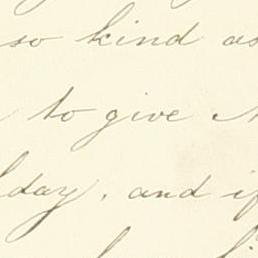 so kind as
to give
day, and if